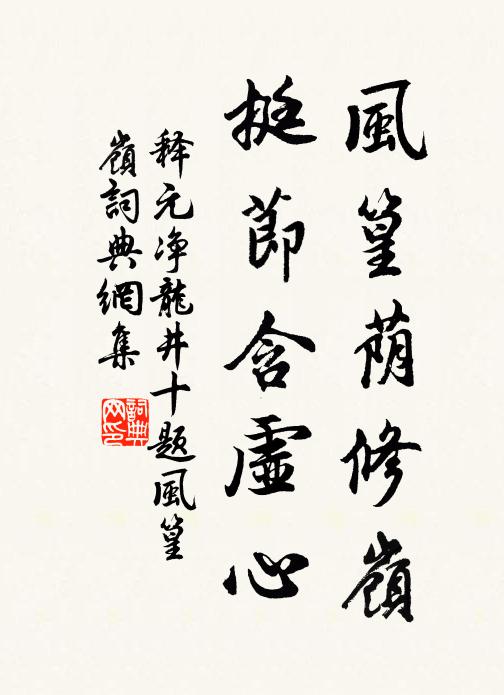 風篁荫修嶺
挺節含虛心
释元净龍井十题風篁
嶺詞典網集
詞典
网印